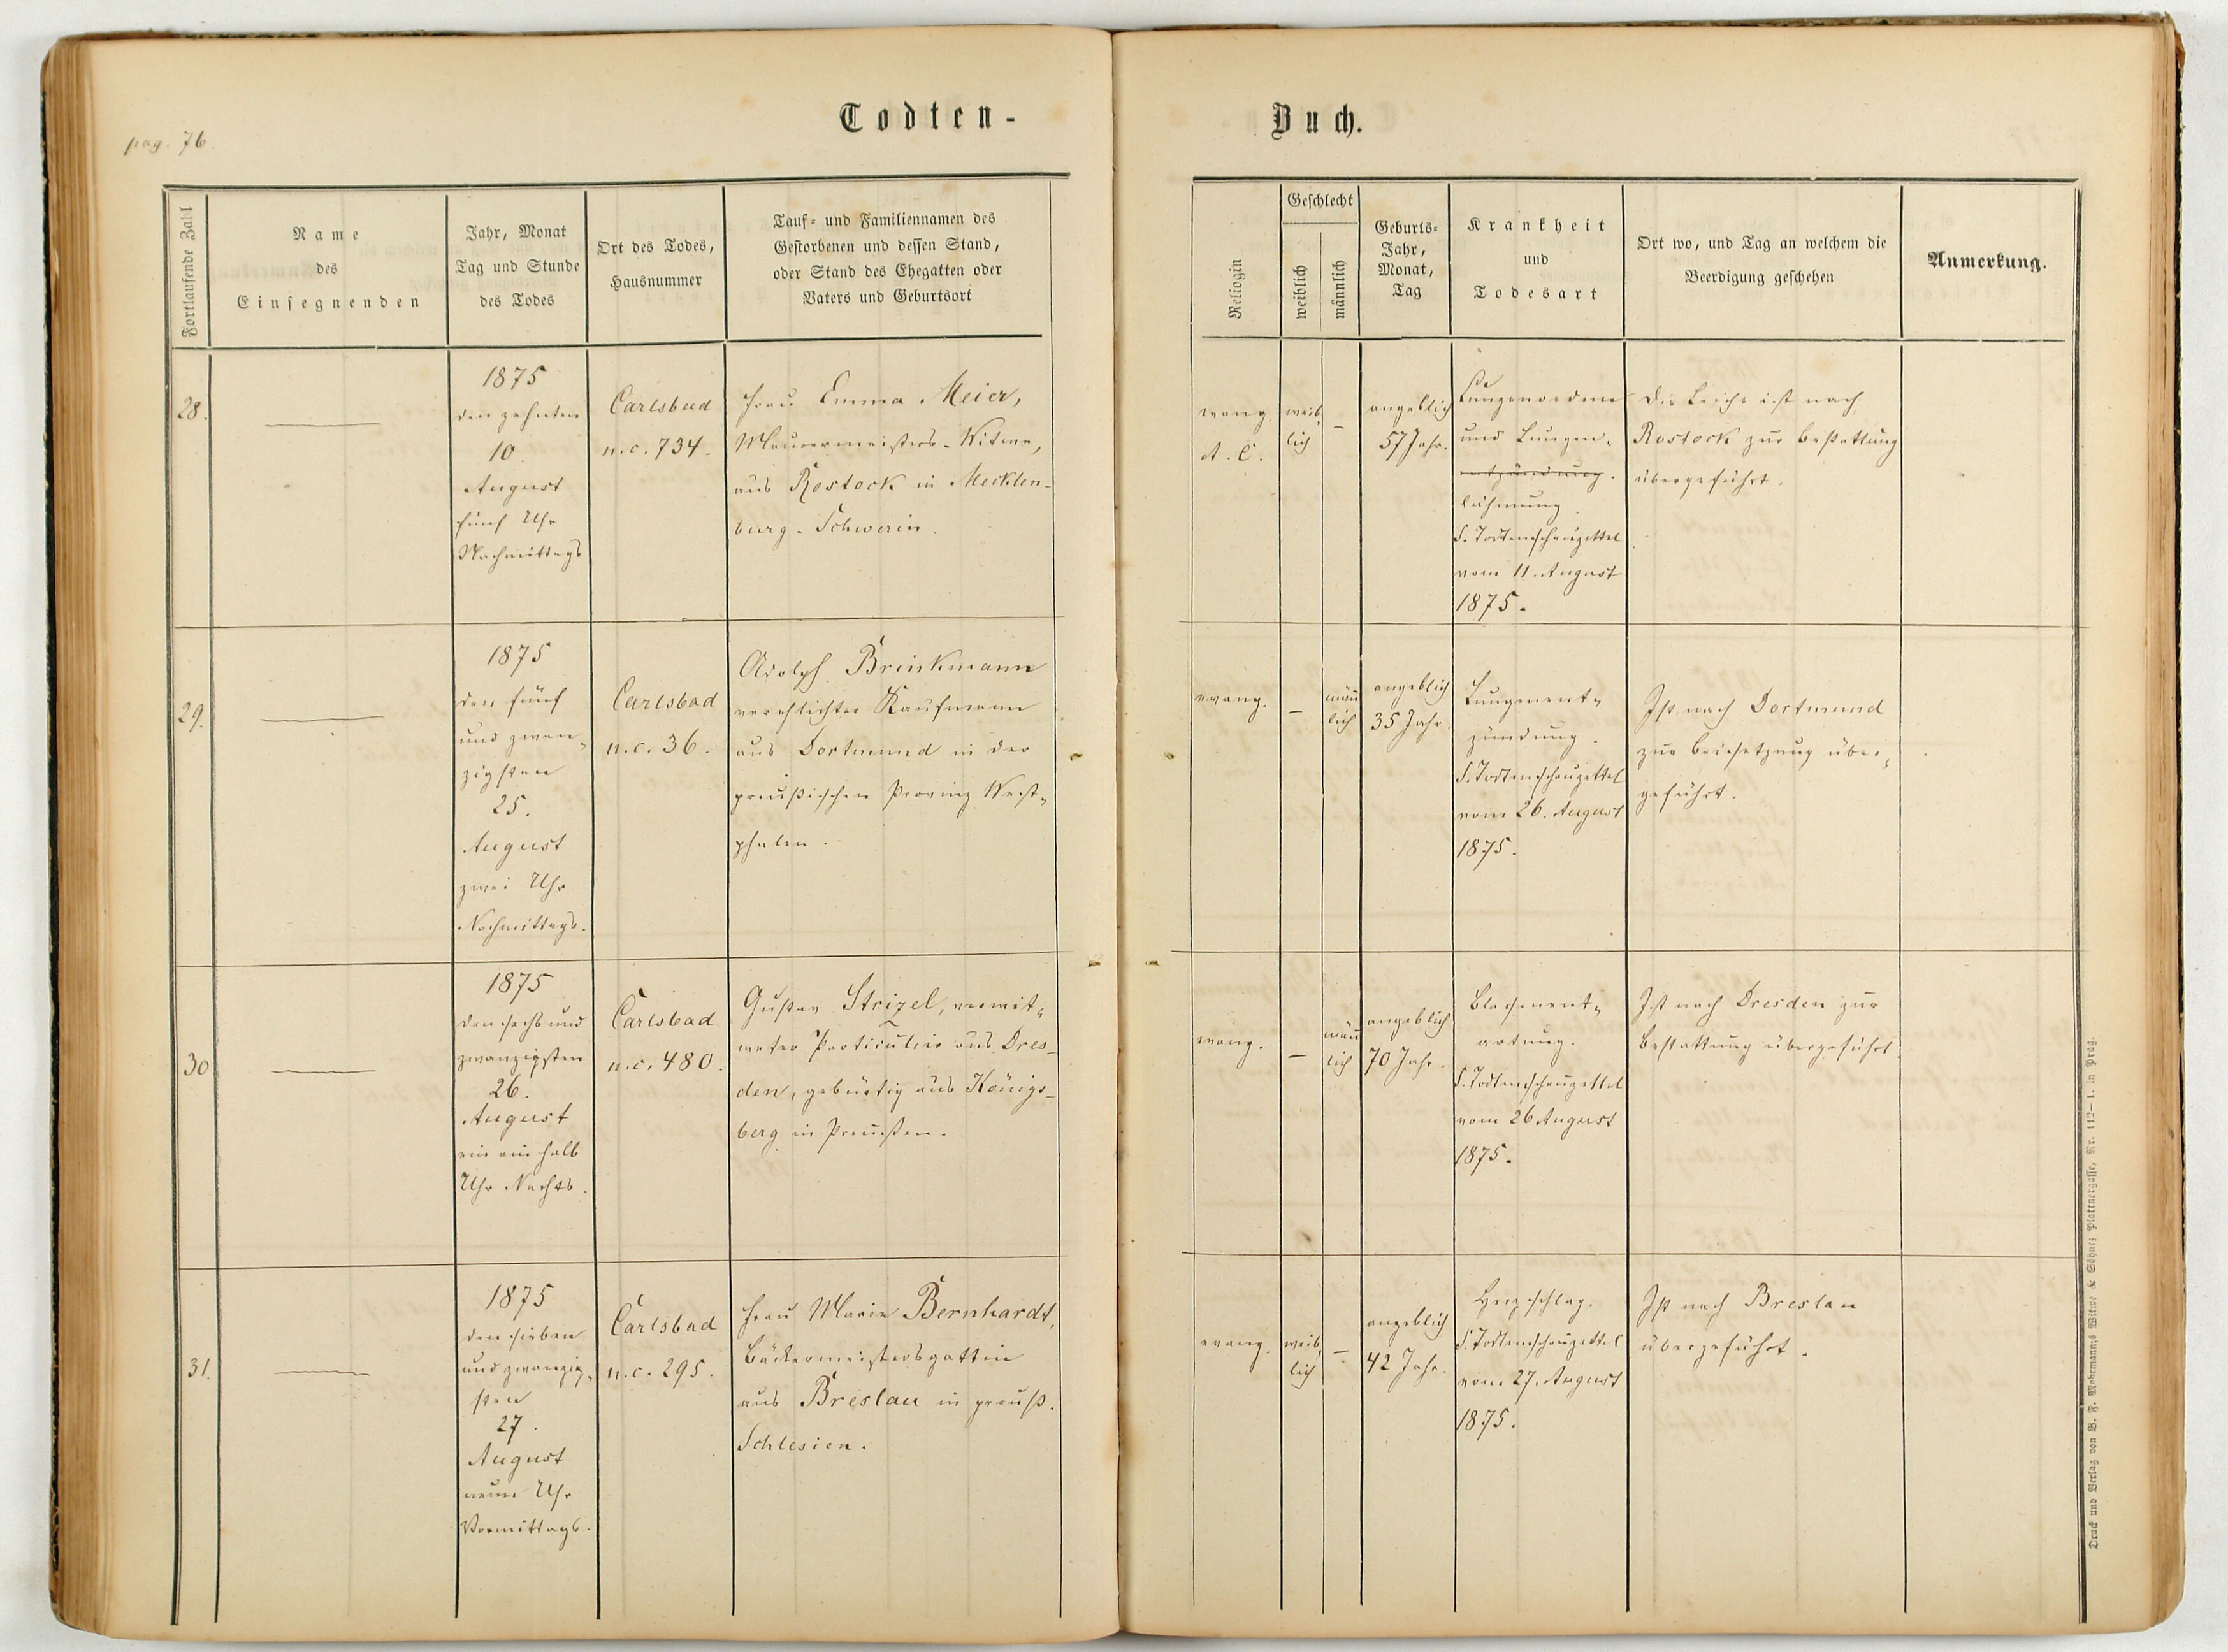 pag. 76.
Todten-
Buch.
Fortlaufende Zahl
Name
des
Einsegnenden
Jahr, Monat
Tag und Stunde
des Todes
Ort des Todes,
Hausnummer
Tauf- und Familiennamen des
Gestorbenen und dessen Stand,
oder Stand des Ehegatten oder
Vaters und Geburtsort
Geschlecht
Reliogin
weiblich
männlich
Geburts-
Jahr,
Monat,
Tag
Krankheit
und
Todesart
Ort wo, und Tag an welchem die
Beerdigung geschehen
Anmerkung.
28.
1875
den zehnten
10.
August
fünf Uhr
Nachmittags
Carlsbad
n.c. 734.
Frau Emma Meier,
Maurermeisters-Witwe,
aus Rostock in Mecklen-
burg-Schwerin.
evang.
A. C.
weib-
lich
–
angeblich
57 Jahr.
Lungenoedem
und Lungen-
entzündung.
lähmung.
S. Todtenschauzettel
vom 11. August
1875.
Die Leiche ist nach
Rostock zur Bestattung
übergeführt.
29.
1875
den fünf
und zwan-
zigsten
25.
August
zwei Uhr
Nachmittags.
Carlsbad
n.c. 36.
Adolph Brinkmann
verehlichter Kaufmann
aus Dortmund in der
preußischen Provinz West-
phalen.
evang.
–
männ
lich
angeblich
35 Jahr.
Lungenent-
zündung.
S. Todtenschauzettel
vom 26. August
1875.
Ist nach Dortmund
zur Beisetzung über-
geführt.
30
1875
den sechs und
zwanzigsten
26.
August
ein ein halb
Uhr Nachts.
Carlsbad
n.c. 480.
Gustav Strizel, verwit-
weter Particulier aus Dres-
den, gebürtig aus Königs-
berg in Preußen.
evang.
–
männ
lich
angeblich
70 Jahr.
Blasenent-
artung.
S. Todtenschauzettel
vom 26 August
1875.
Ist nach Dresden zur
Bestattung übergeführt.
31.
1875
den sieben
und zwanzig-
sten
27.
August
neun Uhr
Vormittags.
Carlsbad
n.c. 295.
Frau Marie Bernhardt,
Bäckermeistersgattin
aus Breslau in preuß.
Schlesien.
evang.
weib-
lich
–
angeblich
42 Jahr.
Herzschlag.
S. Todtenschauzettel
vom 27. August
1875.
Ist nach Breslau
übergeführt.
Druck und Verlag von B. F. Mohrmann's Witwe & Söhne, Plattnergasse, Nr. 112–1. in Prag.